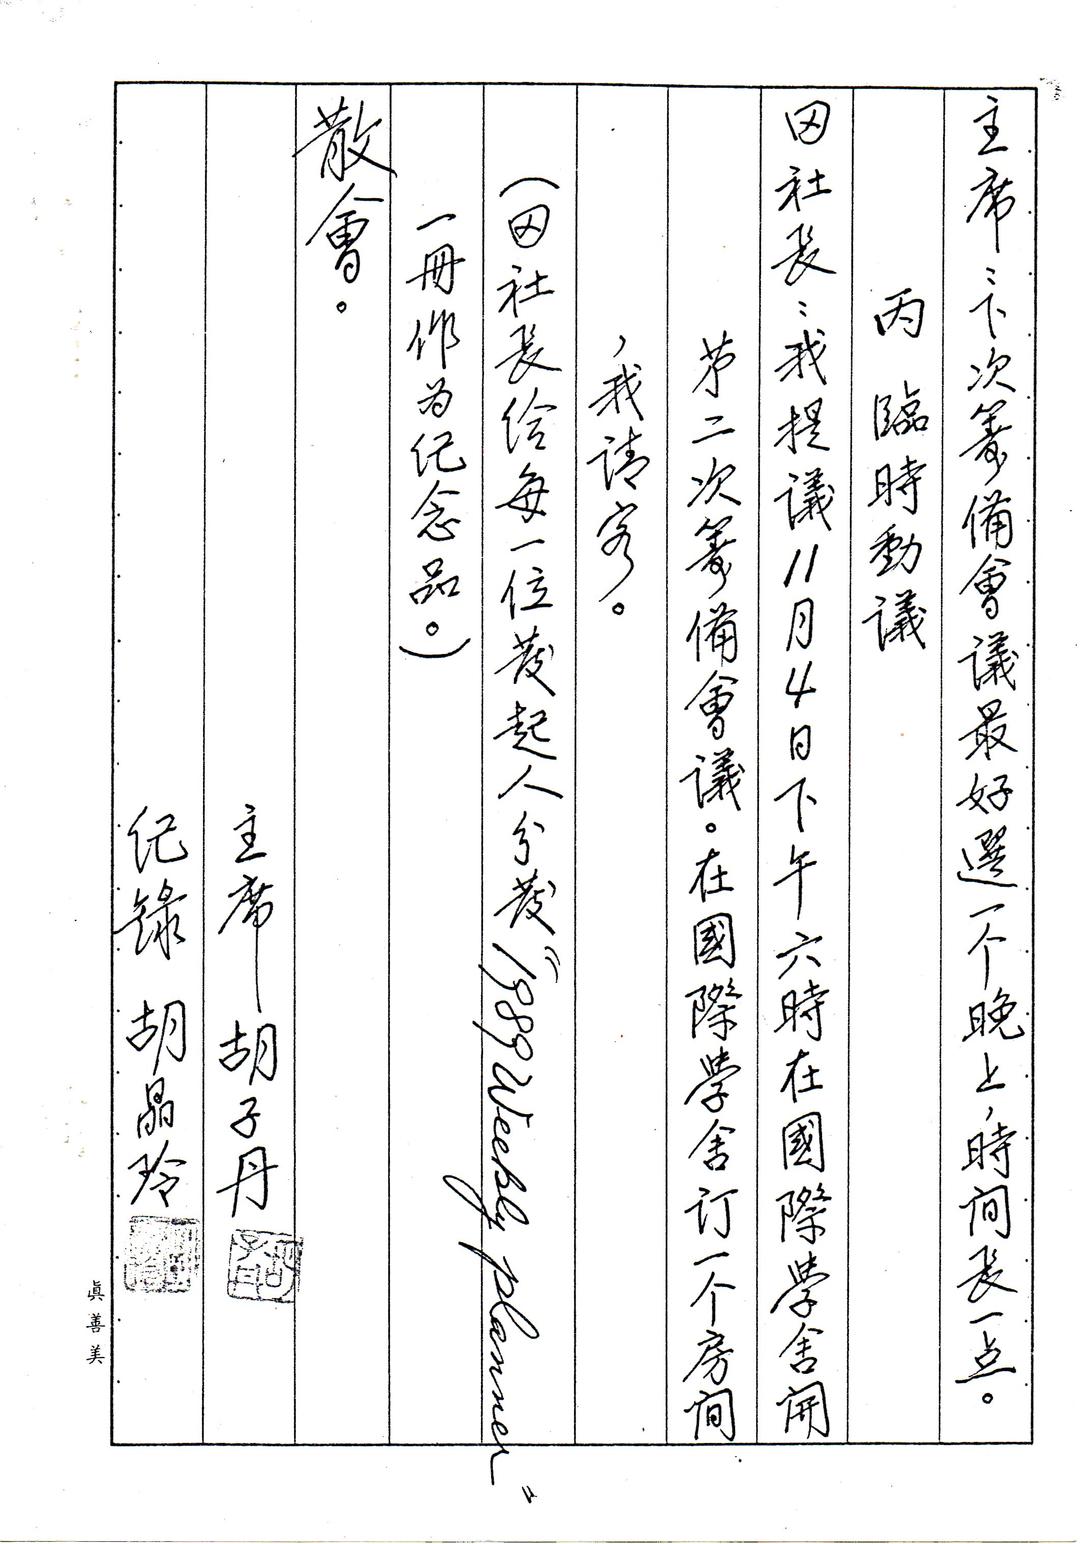 主席：下次筹備會議最好選一个晚上，時间長一点。
丙 臨時動議
田社長：我提議11月4日下午六時在國際學舍開
第二次筹備會議。在國際學舍订一个房间
，我请客。
（田社長给每一位發起人分發“1989 Weekly planner”
一冊作为纪念品。）
散會。
主席 胡子丹
纪錄 胡晶玲
真善美